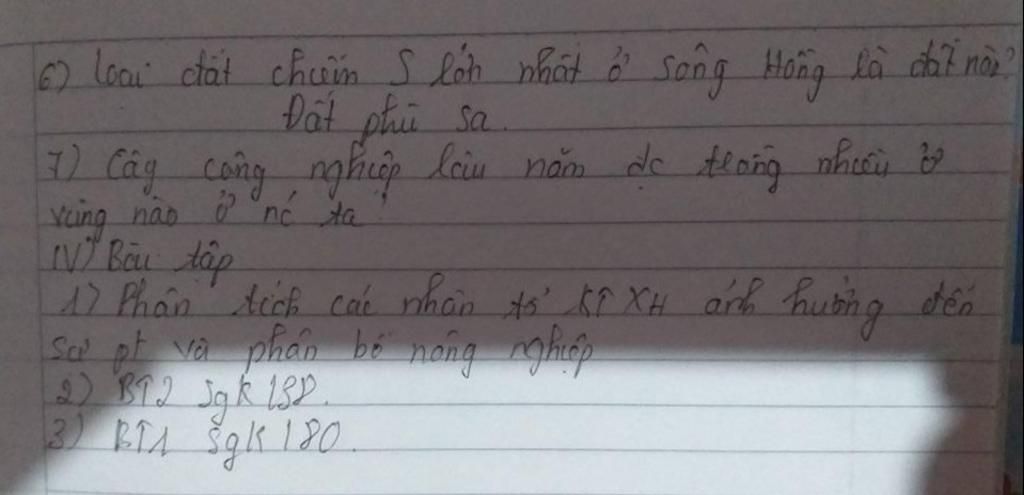 6) Loại đất chiếm S lớn nhất ở sông Hồng là đất nào?
Đất phù sa.
7) Cây công nghiệp lâu năm đc trồng nhiều ở
vùng nào ở nc ta?
IV) Bài tập
1) Phân tích các nhân tố KT XH ảnh hưởng đến
sự pt và phân bố nông nghiệp
2) BT2 sgk
3) BT1 sgk 180.